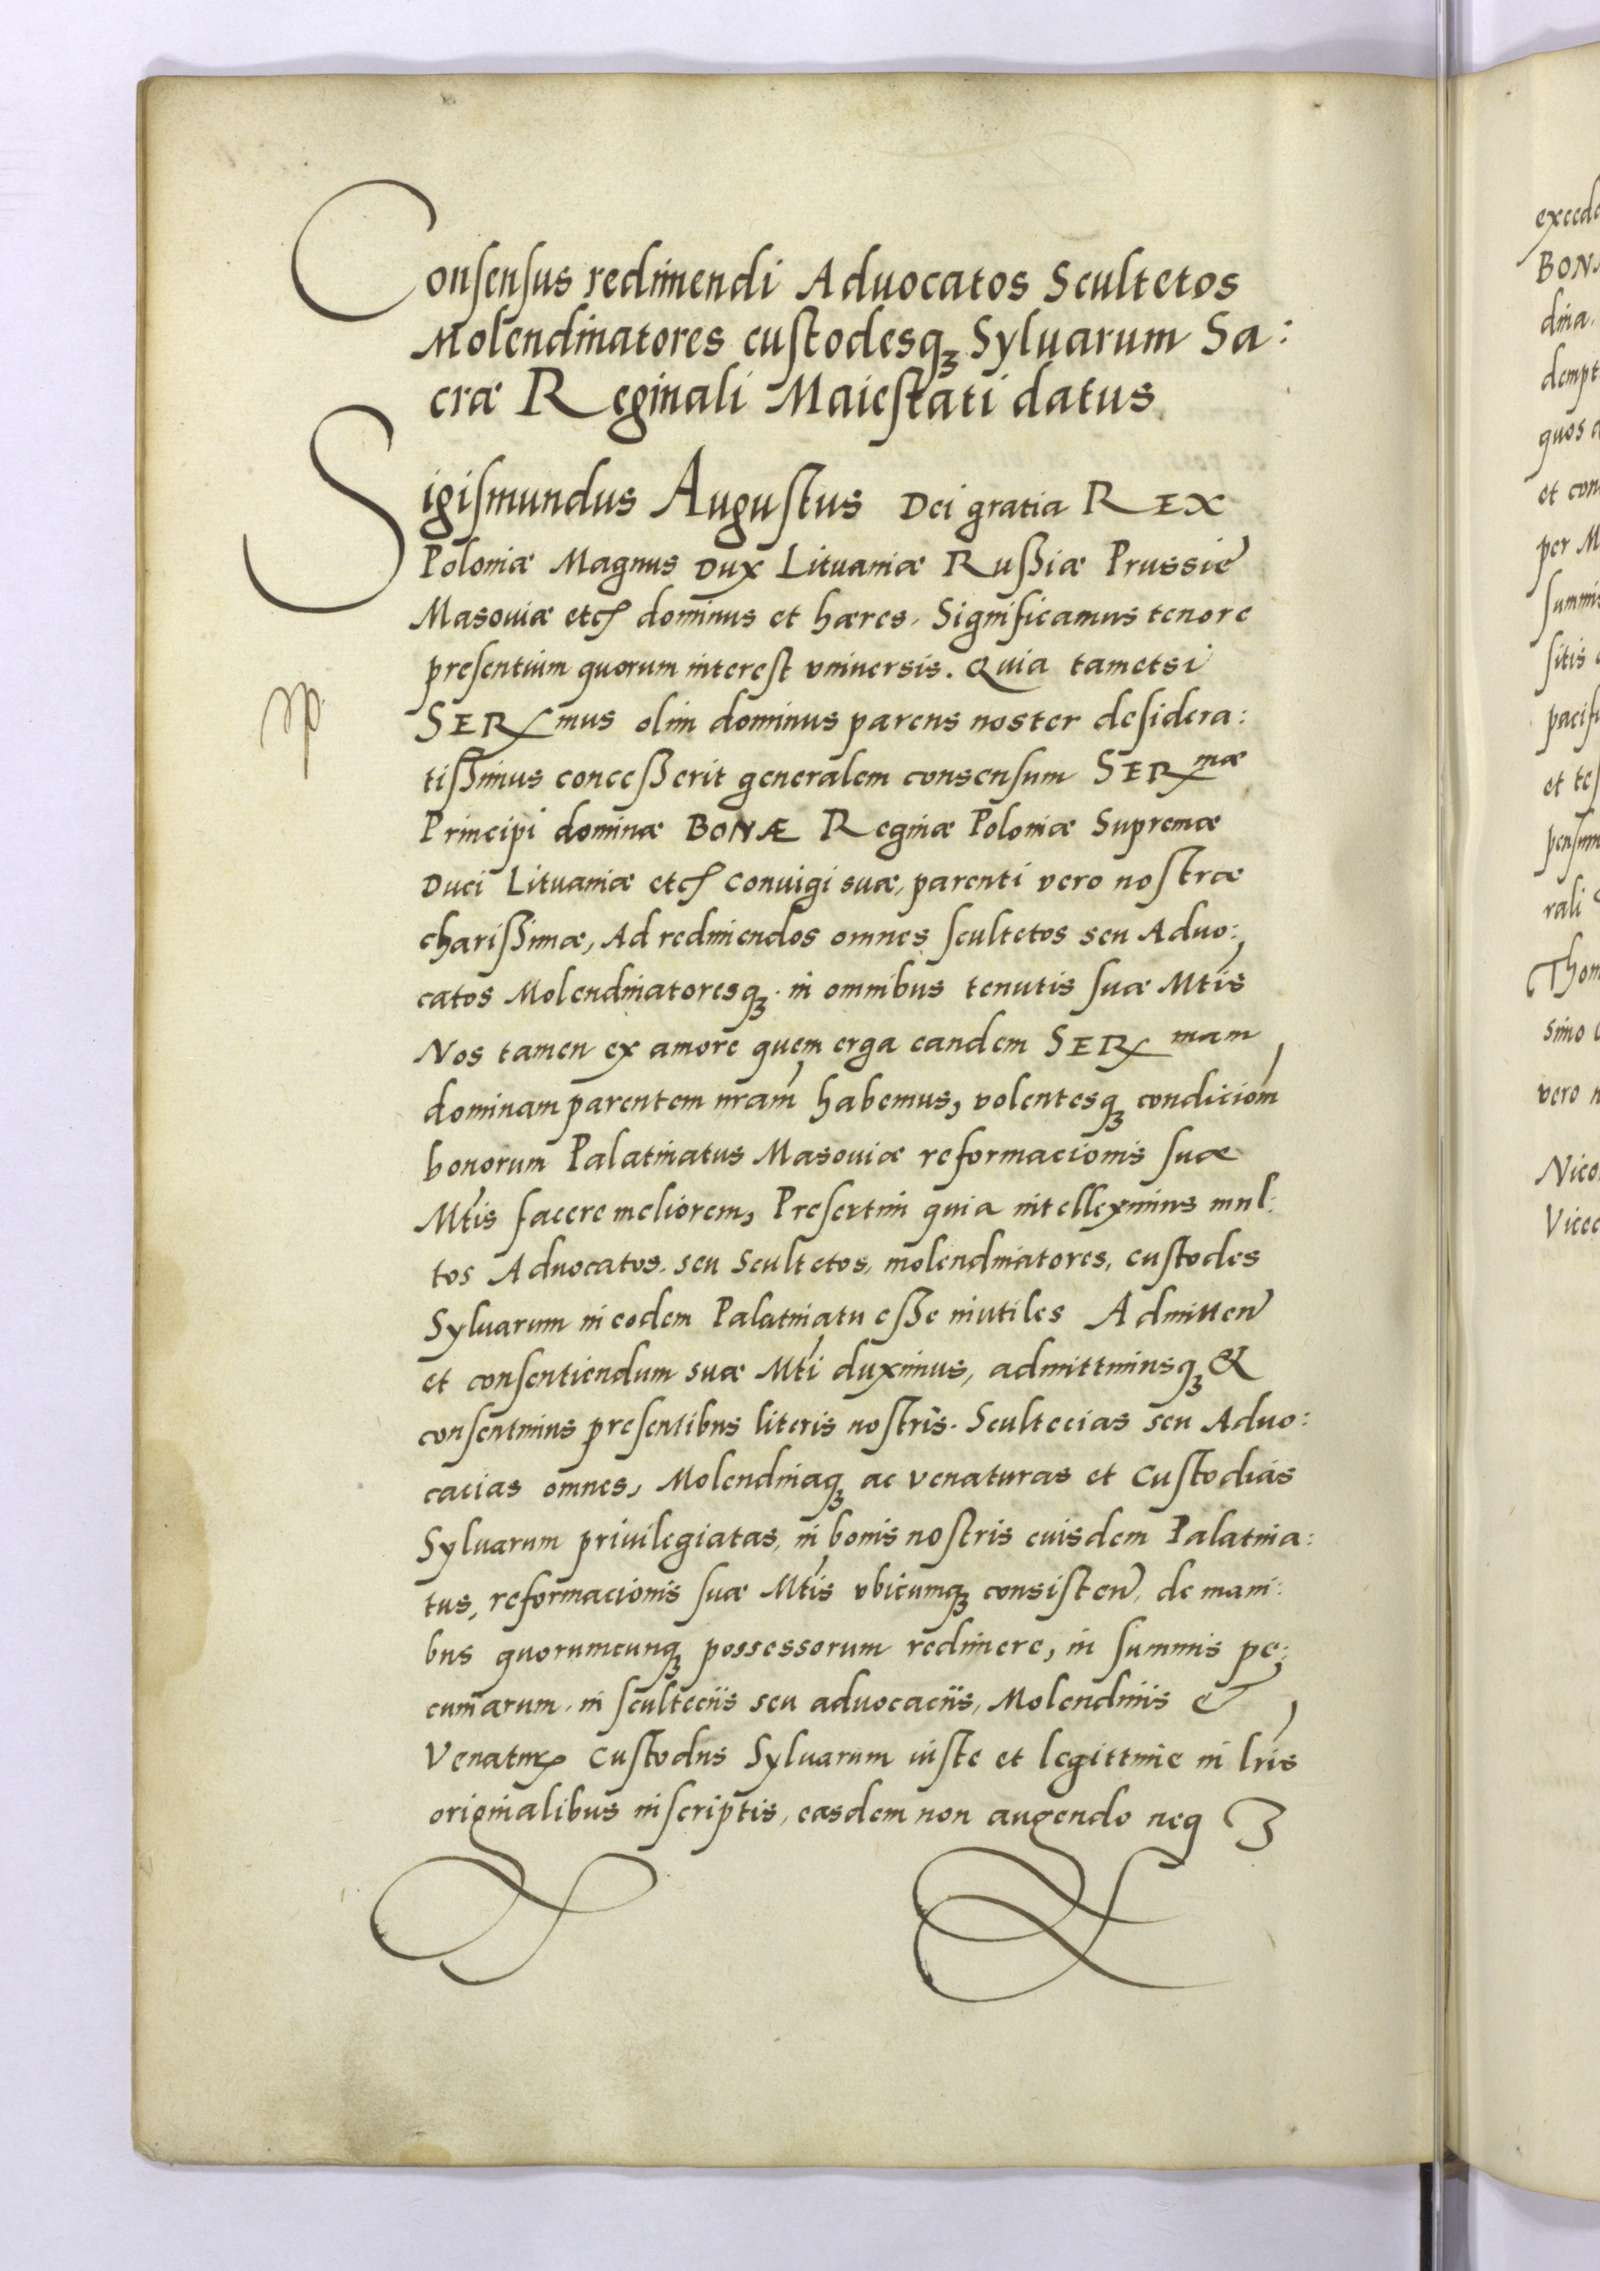 Consensus redimendi Aduocatos Scultetos
Molendinatores custodesqꝫ Syluarum Sa:
cræ Reginali Maiestati datus
Sigismundus Augustus Dei gratia REX
Poloniæ Magnus Dux Lituaniæ Rußiæ Prussiæ
Masouiæ etc dominus et hæres. Significamus tenore
presentium quorum interest vniuersis. Quia tametsi
SERmus olim dominus parens noster desidera:
tißimus conceßerit generalem consensum SERmæ
Principi dominæ BONÆ Reginæ Poloniæ Supremæ
Duci Lituaniæ etc Conuigi suæ, parenti vero nostræ
charißimæ, Ad redimendos omnes scultetos seu Aduo:
catos Molendinatoresqꝫ in omnibus tenutis suæ Mtis
Nos tamen ex amore quem erga eandem SERmam
dominam parentem nram habemus, volentesqꝫ condiciom
bonorum Palatinatus Masouiæ reformacionis suæ
Mtis facere meliorem, Presertim quia intelleximus mul:
tos Aduocatos. seu Scultetos, molendinatores, custodes
Syluarum in eodem Palatinatu eße inutiles Admitten
et consentiendum suæ Mti duximus, admittimusqꝫ &
consentimus presentibus literis nostris. Scultecias seu Aduo:
cacias omnes, Molendinaqꝫ ac venaturas et Custodias
Syluarum priuilegiatas, in bonis nostris euisdem Palatina:
tus, reformacionis suæ Mtis vbicumqꝫ consisten, de mani:
bus quorumcunqꝫ possessorum redimere, in summis pe:
cuniarum. in sculteciis seu aduocaciis, Molendinis &
Venatur Custodiis Syluarum iuste et legittime in lris
originalibus inscriptis, easdem non augendo neqꝫ
excede
BONA
dina.
dempt
quos
et con
per M
summis
sitis
pacifi
et tes
pensum
rali
Thom
simo
vero n
Nico
Vicec